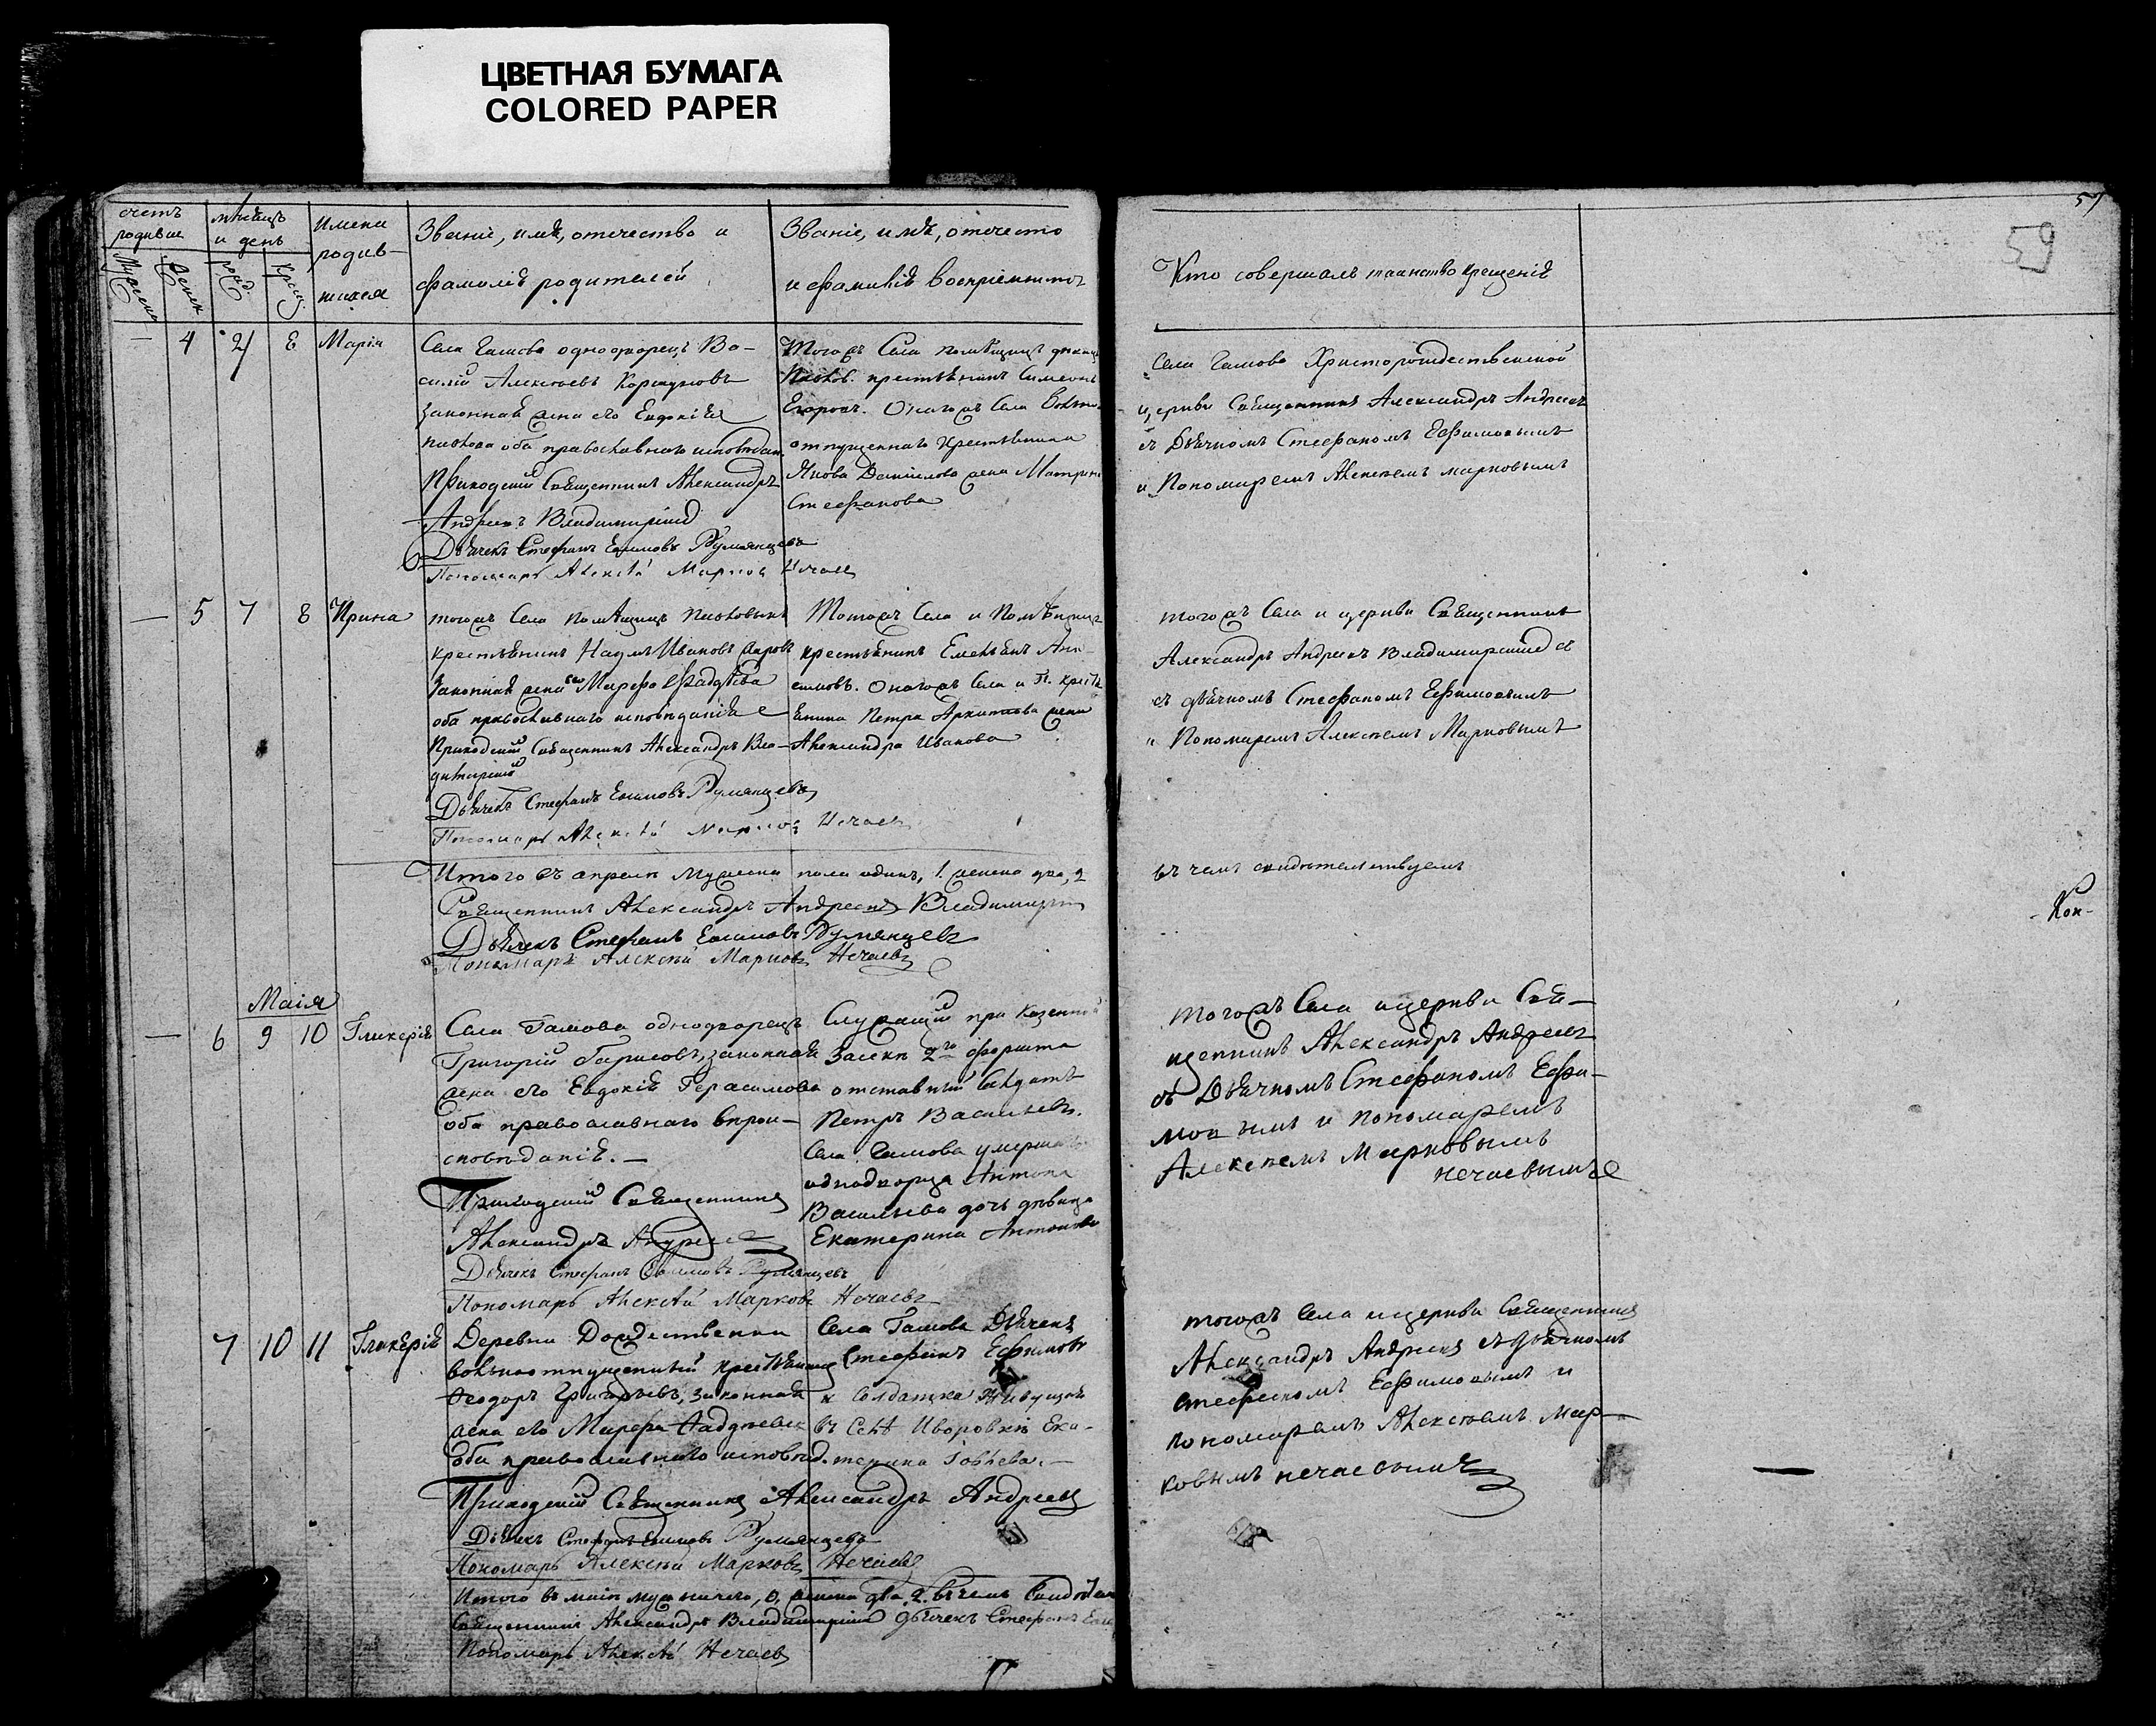 ЦВЕТНАЯ БУМАГА
COLORED PAPER
счетъ родивш
мѣсяцъ и день
Имена родив-шихся
Званіе, имя, отечество и
фамилія родителей
Званіе, имя, отечество
и фамилія воспріемниковъ
Мужеска
Женск
рожд.
крещ.
— 4 2 Марія
Села Гамова однодворецъ Ва-
силій Алексѣевъ
законная жена его Евдокія
оба православнаго исповѣдан.
Приходскій Священникъ Александръ
Андреевъ Владимирскій
Дьячекъ Стефанъ Ефимовъ Румянцевъ
Пономарь Алексѣй Марковъ Нечаевъ
Тогожъ Села помѣщицы дѣвицы
крестьянинъ Симеонъ
Егоровъ. Онагожъ Села
отпущеннаго крестьянина
Якова Данилова жена Матрона
Стефанова
— 5 7 8 Ирина
тогожъ Села помѣщицы
крестьянинъ Наумъ Ивановъ
Законная жена его Марфа Фаддѣева
оба православнаго исповѣданія
Приходскій Священникъ Александръ Вла-
димирскій
Дьячекъ Стефанъ Ефимовъ Румянцевъ
Пономарь Алексѣй Марковъ Нечаевъ
Тогожъ Села и Помѣщицы
крестьянинъ Емельянъ Ани-
симовъ. Онагожъ Села и П. кресть
янина Петра жена
Александра Иванова
Итого въ апрелѣ мужеска пола одинъ, 1. женска два, 2
Священникъ Александръ Андреевъ Владимирскій
Дьячекъ Стефанъ Ефимовъ Румянцевъ
Пономарь Алексѣй Марковъ Нечаевъ
Маія
— 6 9 10 Гликерія
Села Гамова однодворецъ
Григорій Борисовъ, законная
жена его Евдокія Герасимова
оба православнаго вѣрои-
сповѣданія. —
Приходскій Священникъ
Александръ Андреевъ
Дьячекъ Стефанъ Ефимовъ Румянцевъ
Пономарь Алексѣй Марковъ Нечаевъ
Служащій при казенной
Засекѣ 2го
отставный Солдатъ
Петръ Васильевъ.
Села Гамова умерша
однодворца Антона
Васильева дочь дѣвица
Екатерина Антонова
7 10 11 Гликерія
Деревни Рождественки
вольноотпущенный крестьянинъ
Феодоръ Григорьевъ, законная
жена его Марфа Фаддѣева
оба православнаго исповѣд.
Приходскій Священникъ Александръ Андреевъ
Дьячекъ Стефанъ Ефимовъ Румянцевъ
Пономарь Алексѣй Марковъ Нечаевъ
Села Гамова Дьячекъ
Стефанъ Ефимовъ
и Солдатка Живущая
въ Селѣ Ека-
терина
Итого въ маіѣ муж ничего, 0, женска два, 2. въ чемъ
Священникъ Александръ Владимирскій Дьячекъ Стефанъ
Пономарь Алексѣй Нечаевъ
59
Кто совершалъ таинство крещенія
Села Гамова Христорождественской
церкви Священникъ Александръ Андреевъ
съ Дьячкомъ Стефаномъ Ефимовымъ
и Пономаремъ Алексѣемъ Марковымъ
тогожъ Села и церкви Священникъ
Александръ Андреевъ Владимирскій
съ дьячкомъ Стефаномъ Ефимовымъ
и Пономаремъ Алексѣемъ Марковымъ
въ чемъ свидѣтельствуемъ
Кон-
тогожъ Села и церкви Свя-
щенникъ Александръ Андреевъ
съ Дьячкомъ Стефаномъ Ефи-
мовымъ и пономаремъ
Алексѣемъ Марковымъ
нечаевымъ
тогожъ Села и церкви Священникъ
Александръ Андреевъ съ дьячкомъ
Стефаномъ Ефимовымъ и
пономаремъ Алексѣемъ Мар-
ковымъ нечаевымъ